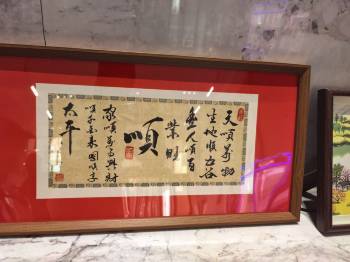 天順萬物
生地順五谷
人順百
業旺
順
家順萬事興財
順來國順享
太平